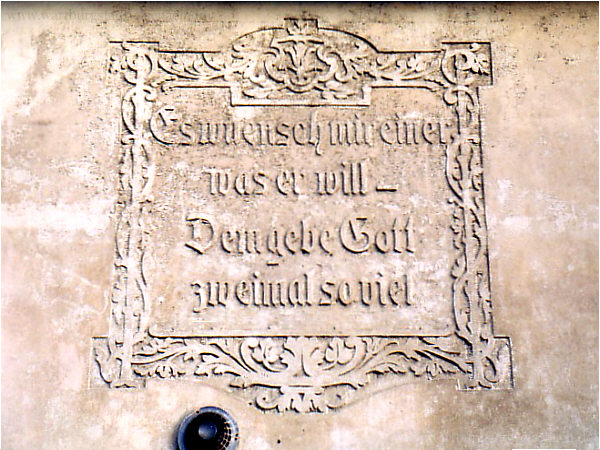 Es wuensch mir einer
was er will –
Dem gebe Gott
zweimal soviel